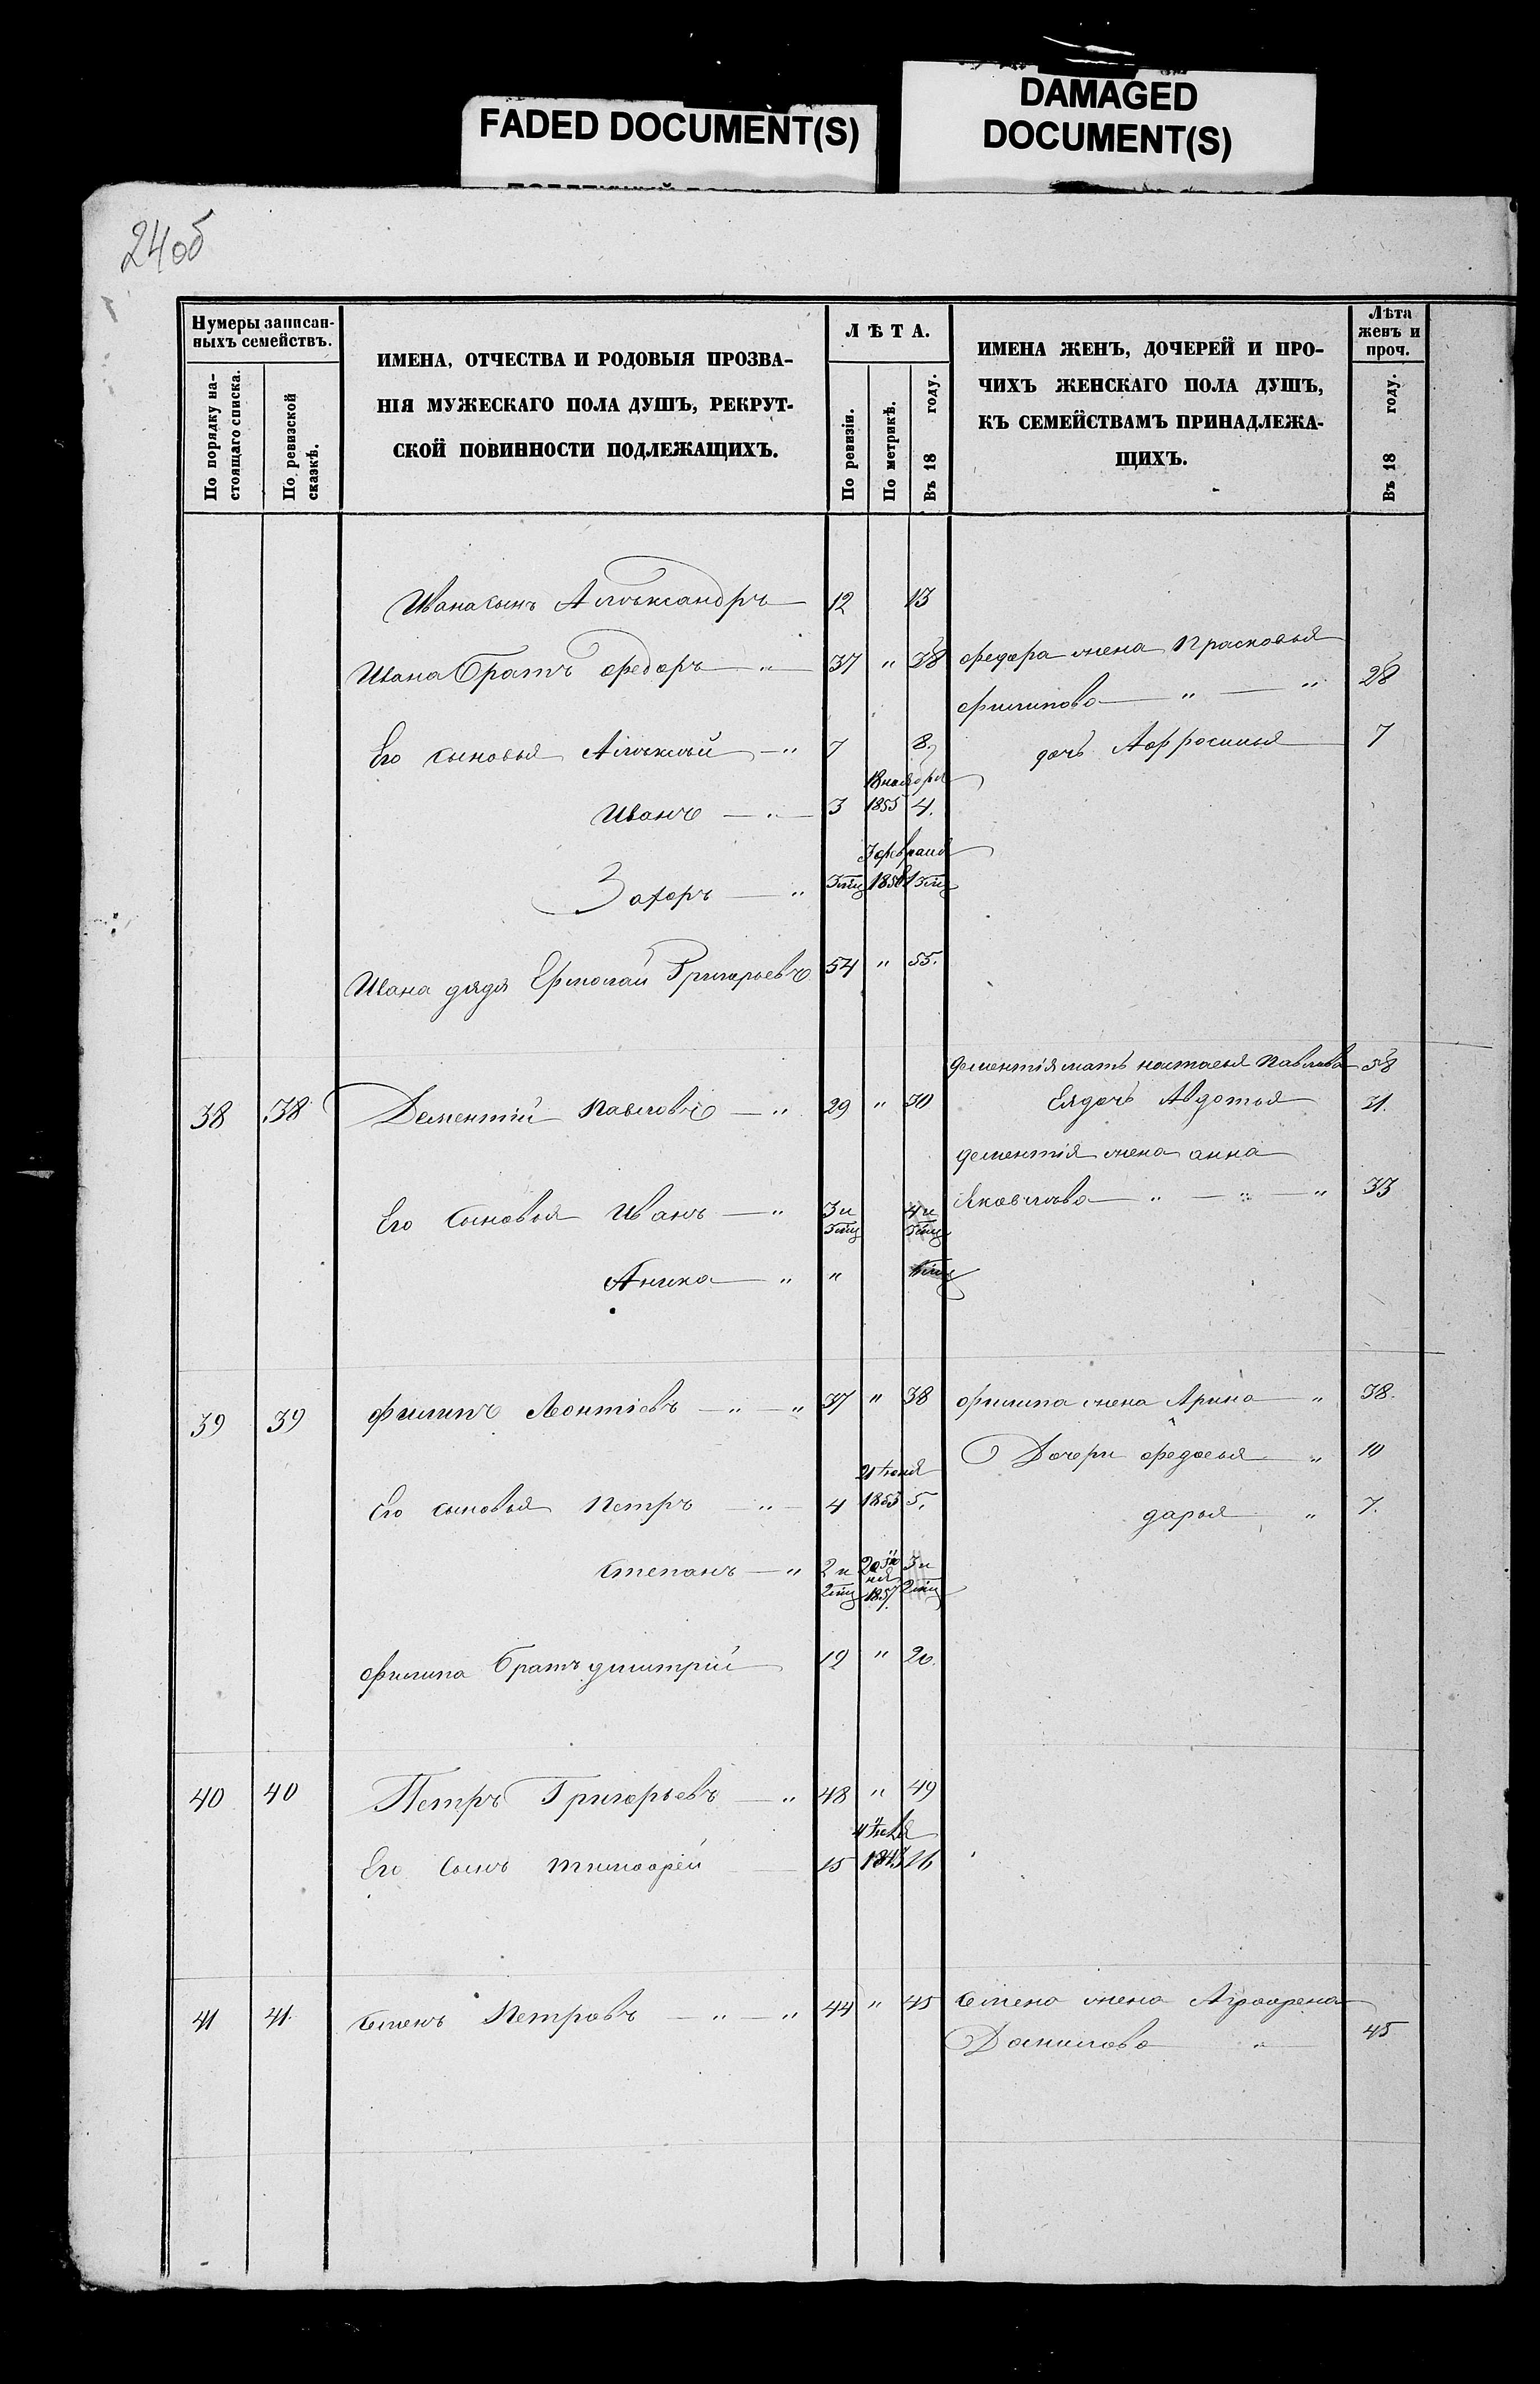 FADED DOCUMENT(S)
DAMAGED
DOCUMENT(S)
24об
Нумеры записан-
ныхъ семействъ.
По порядку на-
стоящаго списка.
По ревизской
сказкѣ.
ИМЕНА, ОТЧЕСТВА И РОДОВЫЯ ПРОЗВА-
НІЯ МУЖЕСКАГО ПОЛА ДУШЪ, РЕКРУТ-
СКОЙ ПОВИННОСТИ ПОДЛЕЖАЩИХЪ.
ЛѢТА.
По ревизіи.
По метрикѣ.
Въ 18 году.
ИМЕНА ЖЕНЪ, ДОЧЕРЕЙ И ПРО-
ЧИХЪ ЖЕНСКАГО ПОЛА ДУШЪ,
КЪ СЕМЕЙСТВАМЪ ПРИНАДЛЕЖА-
ЩИХЪ.
Лѣта
женъ и
проч.
Въ 18 году.
Ивана сынъ Алѣксандръ 12 13
Ивана братъ Федоръ — " — 37 " 38 Федора жена Прасковья
Филипова — " — " 28
Его сыновья Алѣксѣй — " 7 8. дочь Афросинья 7
18 ноября
Иванъ — " — 3 1855 4.
3 февраля
Захоръ — " 3 мц 1858 1 3 мц
Ивана дядя Ермолай Григорьевъ 54 " 55.
Дементія мать настасья Павлова 58
38 38 Дементій Павловъ — " 29 " 30 Ея дочь Авдотья 31.
Дементія жена анна
Яковлѣва — " — " — " 33
Его сыновья Иванъ — " 3 и 4 и
5 мц 5 мц
Аника — " "
39 39 Филипъ Леонтіевъ — " — " 37 " 38 Филипа жена Арина — " 38.
Дочери федосья " 10
21 Іюня
Его сыновья Петръ — " — 4 1853 5. дарья " 7.
Степанъ — " 2 и 20 Ію 3 и
2 мц ня 2 мц
1857
Филипа братъ дмитрій 19 " 20.
40 40 Петръ Григорьевъ — " 48 " 49
Его сынъ тимофей 15 16
41 41. Семенъ Петровъ — " — " 44 " 45 Семена жена Аграфена
Данилова " 45